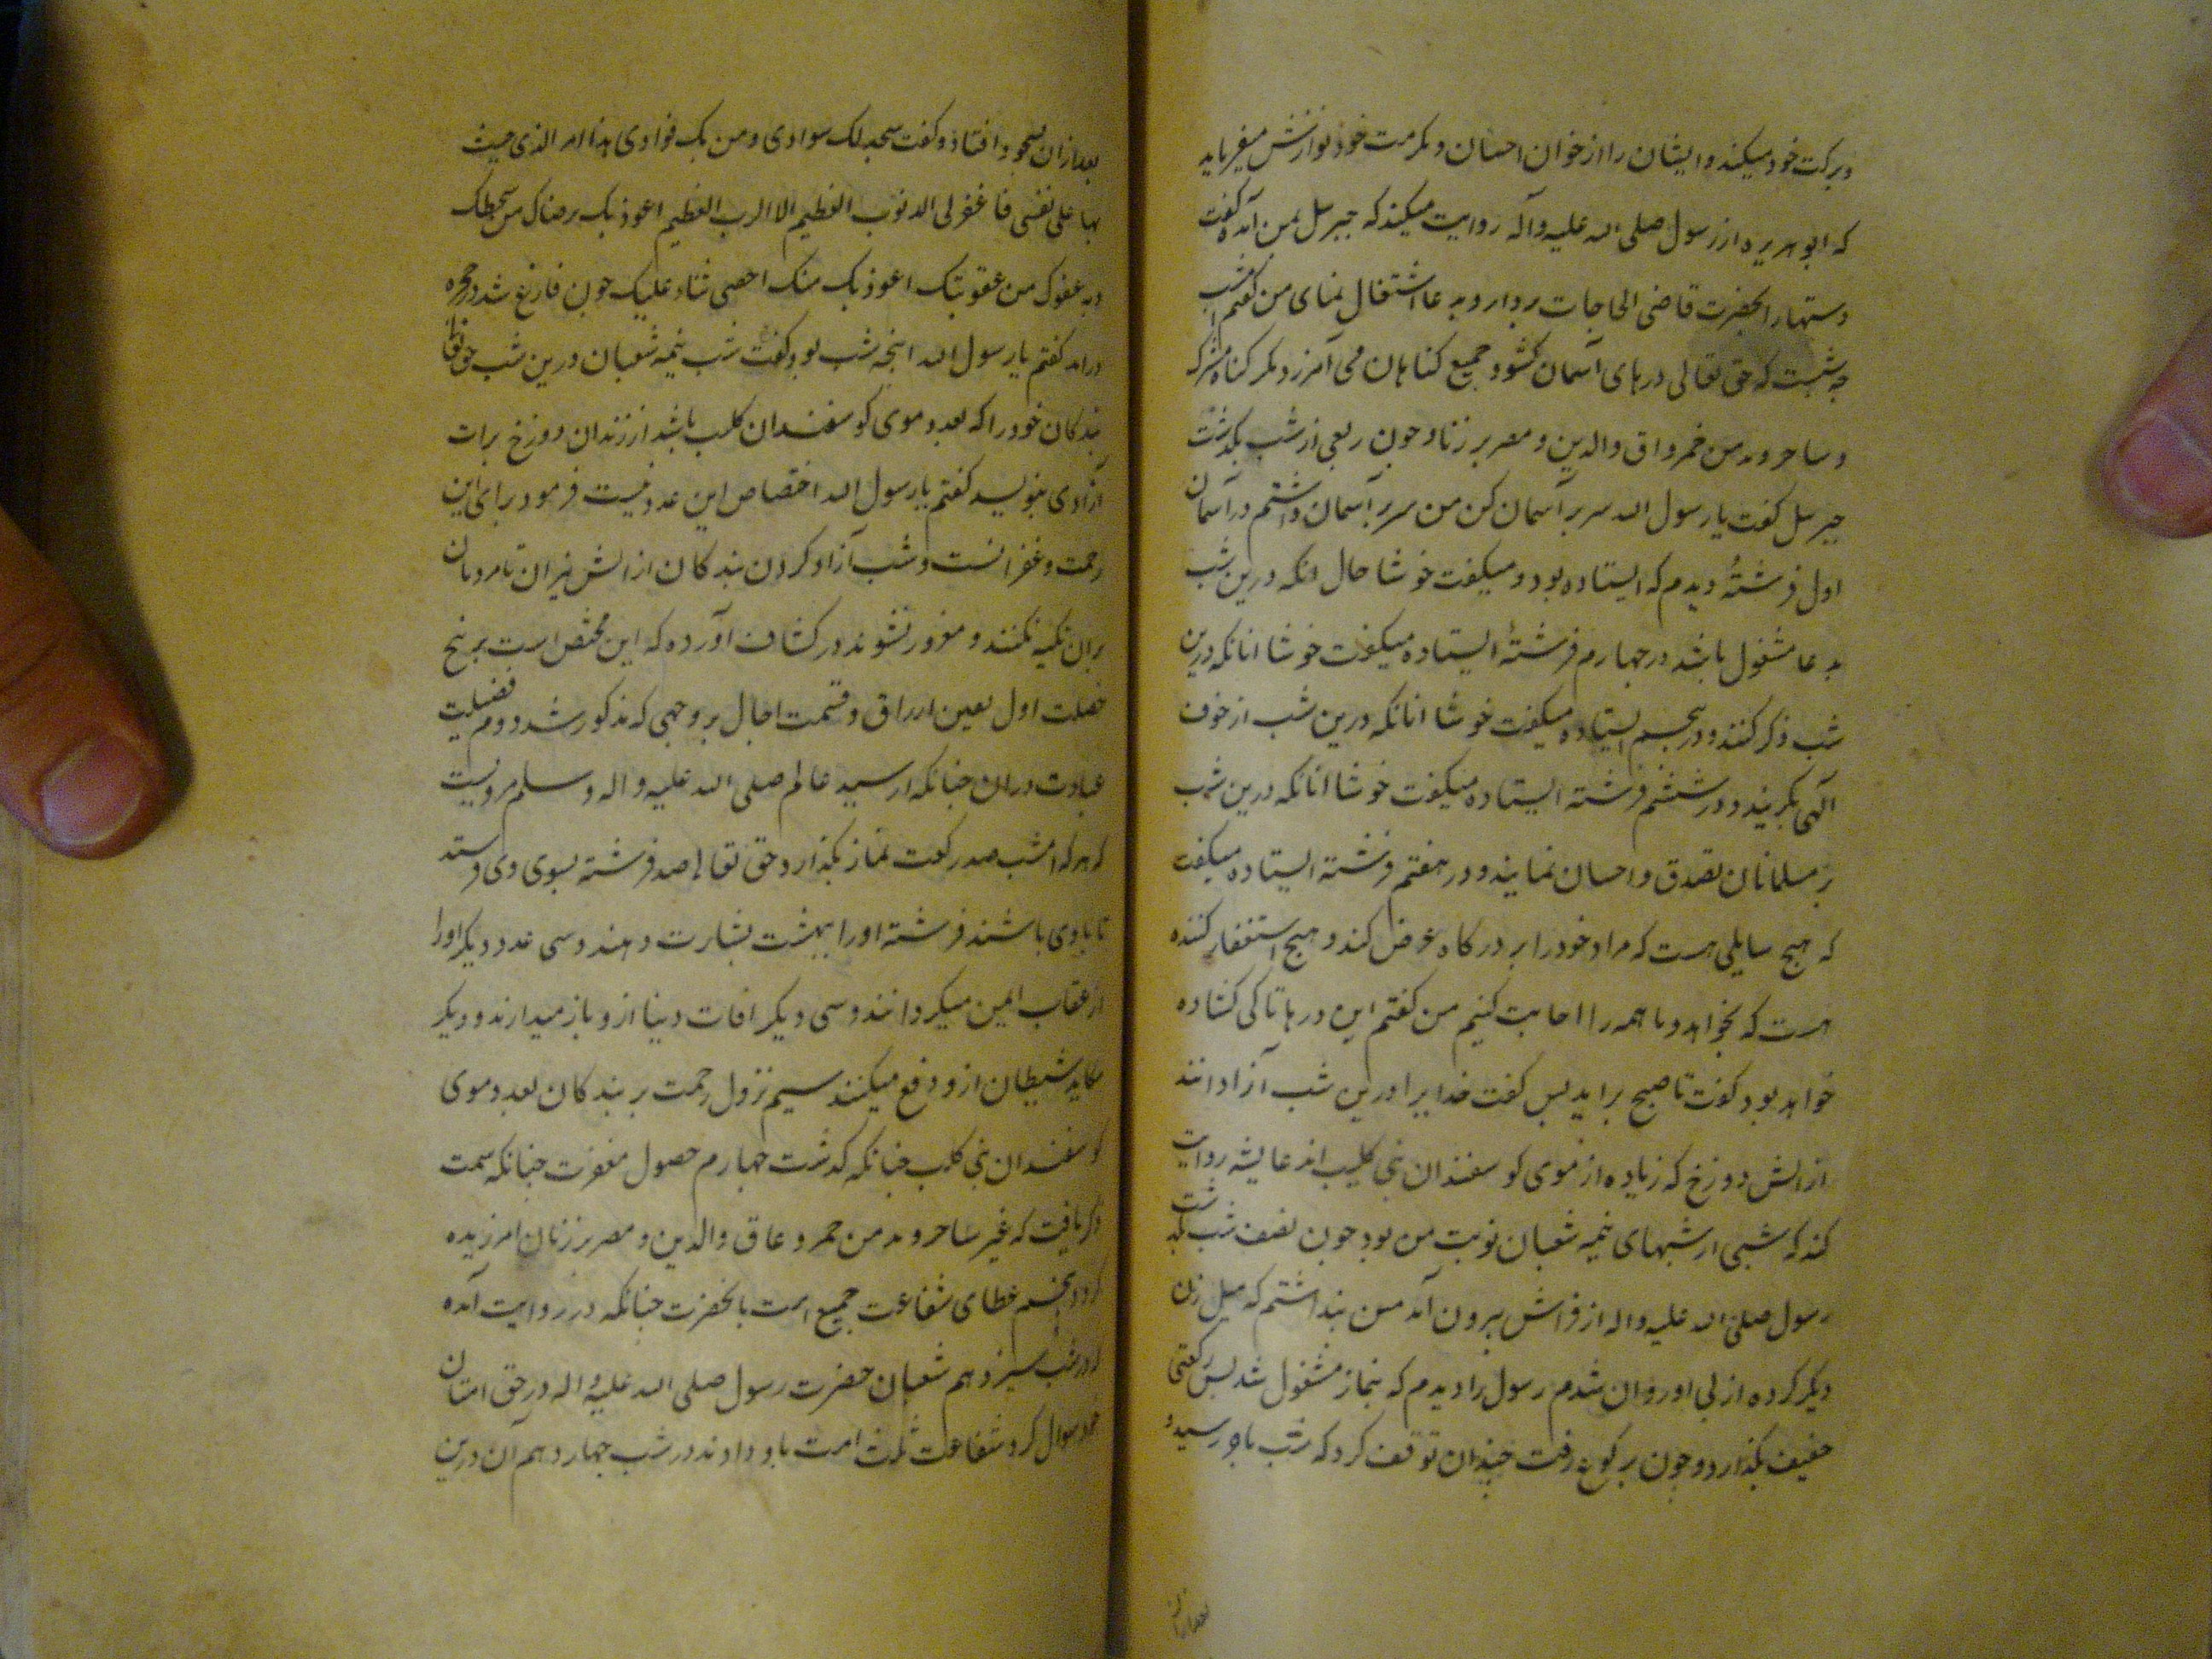 وبرکت خود میکند و ایشان را از خوان احسان و مکرمت خود نوازش میفرماید
که ابو هریره از رسول صلی الله علیه وآله روایت میکند که جبرئیل بمن آمده گفت
دستها را بحضرت قاضی الحاجات بردار و بدعا اشتغال نمای من گفتم امشب
چه شبست که حق تعالی درهای آسمان کشود و جمیع کناهان می آمرزد مکر کناه مشرک
و ساحر و مدمن خمر و اق والدین و مصر بر زنا و چون ربعی از شب بکذشت
جبرئیل کفت یا رسول الله سر بر آسمان کن من سر بر آسمان داشتم در آسمان
اول فرشتهٔ دیدم که ایستاده بود و میکفت خوشا حال انکه درین شب
بدعا مشغول باشد در چهارم فرشتهٔ ایستاده میکفت خوشا انانکه درین
شب ذکر کنند و در پنجم ایستاده میکفت خوشا انانکه درین شب از خوف
الهی بکریند و در ششم فرشته ایستاده میکفت خوشا انانکه درین شب
بر مسلمانان تصدق و احسان نمایند و در هفتم فرشته ایستاده میکفت
که هیچ سایلی هست که مراد خود را بر درکاه عرض کند و هیچ استغفار کننده
هست که بخواهد و ما همه را اجابت کنیم من کفتم این درها تا کی کشاده
خواهد بود کفت تا صبح براید پس کفت خدایرا درین شب آزادانند
از آتش دوزخ که زیاده از موی کوسفندان بنی کلیب اند عایشه روایت
کند که شبی از شبهای نیمه شعبان نوبت من بود چون نصف شب بکذشت
رسول صلی الله علیه و اله از فراش بیرون آمد من پنداشتم که میل زن
دیکر کرده از پی او روان شدم رسول را دیدم که بنماز مشغول شد پس رکعتی
خفیف بکذارد و چون برکوع رفت چندان توقف کرد که شب باو رسید و
بعد ازان
بعد ازان بسجود افتاد و کفت سجد لک سوادی و من بک فوادی هذا امر الذی جیث
بها علی نفسی فاغفر لی الذنوب العظیم الا الرب العظیم اعوذ بک برضاک من سخطک
و به عفوک من عقوبتک اعوذ بک منک احصی ثناء علیک چون فارغ شد در حجره
درامد کفتم یا رسول الله اینچه شب بود کفت شب نیمه شعبان درین شب حق تعالی
بندکان خود را که بعدد موی کوسفندان کلب باشد از زندان دوزخ برات
آزادی بنویسد کفتم یا رسول الله اختصاص این عدد چیست فرمود برای این
رحمت و غفرانست و شب آزاد کردن بندکان از آتش نیران تا مردمان
بران تکیه نکنند و مغرور نشوند در کشاف آورده که این مختص است به پنج
خصلت اول تعین ارزاق و قسمت اجال بر وجهی که مذکور شد دوم فضیلت
عبادت دران چنانکه از سید عالم صلی الله علیه و اله و سلم مرویست
که هرکه امشب صد رکعت نماز بکذارد حق تعالی صد فرشته بسوی وی فرستد
تا باوی باشند فرشته اورا ببهشت بشارت دهند و سی عدد دیکر اورا
از عقاب ایمن میکردانند و سی دیکر افات دینا ازو باز میدارند و دیکر
مکاید شیطان ازو دفع میکنند سیم نزول رحمت بر بندکان بعدد موی
کوسفندان بنی کلب چنانکه کذشت چهارم حصول مغفرت چنانکه سمت
ذکر یافت که غیر ساحر و مدمن خمر و عاق والدین و مصر بر زنان امرزیده
کردد پنجم عطای شفاعت جمیع است بانحضرت چنانکه در روایت آمده
که در شب سیزدهم شعبان حضرت رسول صلی الله علیه و اله در حق امتان
خود سوال کرد شفاعت ثلث امت باو دادند در شب چهاردهم آن درین